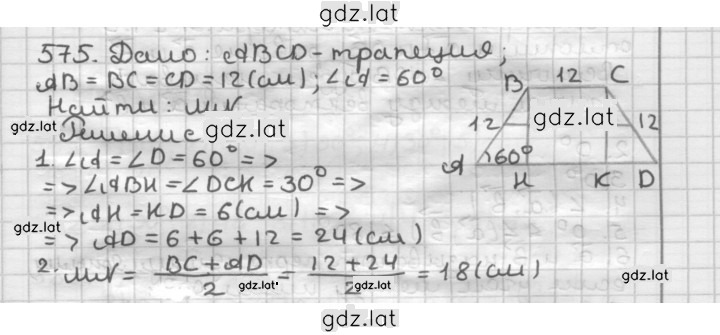 gdz.lat
575. Дано: ABCD - трапеция;
AB = BC = CD = 12 (см); ∠A = 60°
Найти: MN
gdz.lat Решение gdz.lat
1. ∠A = ∠D = 60° =>
=> ∠ABH = ∠DCK = 30° =>
=> AH = KD = 6 (см) =>
=> AD = 6 + 6 + 12 = 24 (см)
2. MN = BC + AD / 2 = 12 + 24 / 2 = 18 (см)
gdz.lat gdz.lat gdz.lat
B 12 C
gdz.lat
12 12
A 60° H K D
gdz.lat